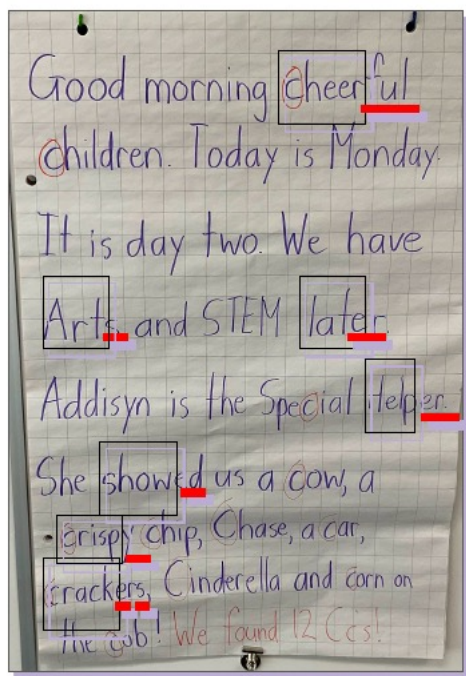 Good morning cheerful
children. Today is Monday.
It is day two. We have
Arts, and STEM later.
Addisyn is the Special Helper.
She showed us a cow, a
crispy chip, Chase, a car,
crackers, Cinderella and corn on
the cob! We found 12 Cc's!